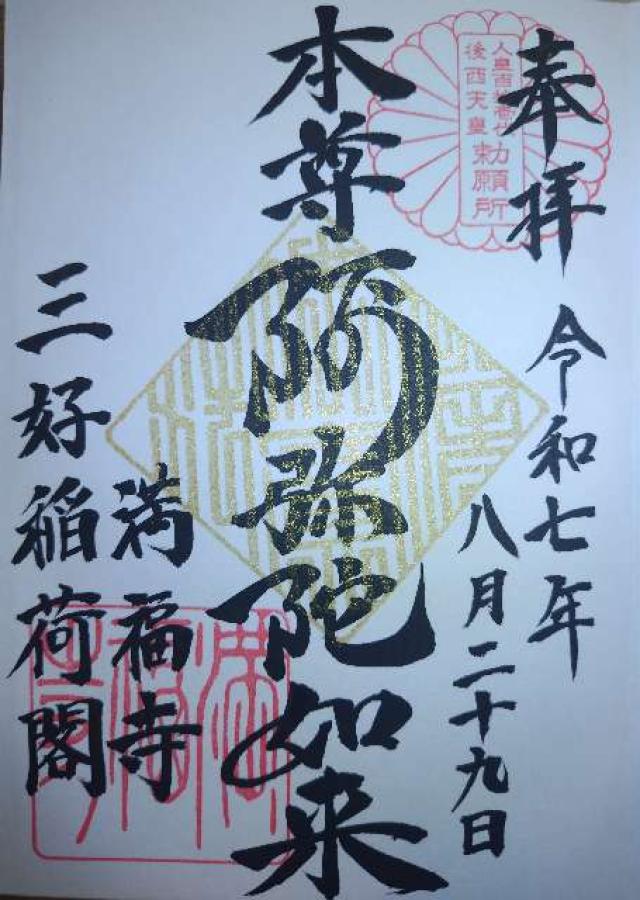 奉拝
令和七年
八月二十九日
人皇百拾壱代
後西天皇勅願所
本尊阿弥陀如来
満福寺
三好稲荷閣